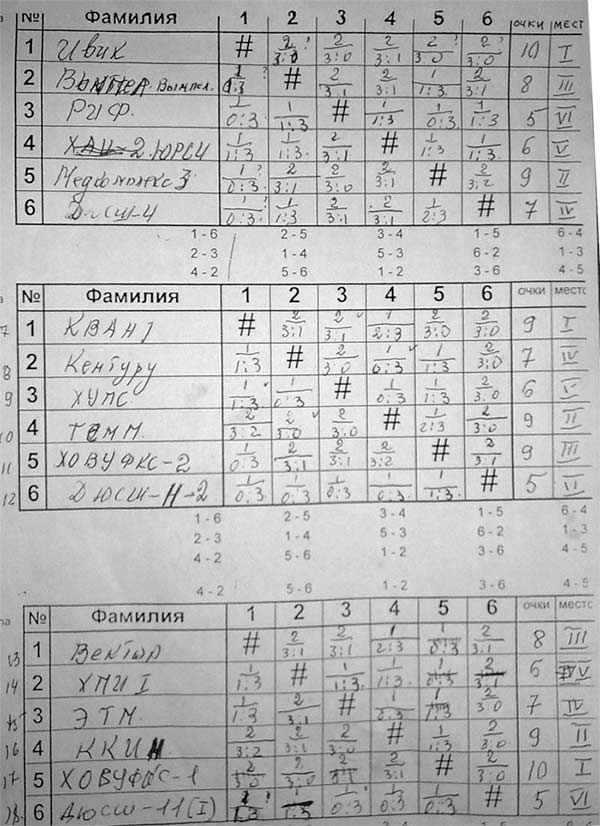 № Фамилия 1 2 3 4 5 6 очки мест
1 Ивик # 2/3:0? 2/3:0 2/3:1 2/3:0? 2/3:0? 10 I
2 Вымпел 1/0:3? # 2/3:1 2/3:1 1/1:3 2/3:1 8 III
3 РИФ. 1/0:3 1/1:3 # 1/1:3 1/0:3 1/1:3 5 VI
4 2 ЮРСИ 1/1:3 1/1:3 2/3:1 # 1/1:3 1/1:3 6 V
5 Медкомплекс 3 1/0:3? 2/3:1 2/3:0 2/3:1 # 2/3:2 9 II
6 1/0:3? 1/1:3 2/3:1 2/3:1 1/2:3 # 7 IV
1 - 6 2 - 5 3 - 4 1 - 5 6 - 4
2 - 3 1 - 4 5 - 3 6 - 2 1 - 3
4 - 2 5 - 6 1 - 2 3 - 6 4 - 5
№ Фамилия 1 2 3 4 5 6 очки место
7 1 КВАНТ # 2/3:1 2/3:1 1/2:3 2/3:0 2/3:0 9 I
8 2 Кентуру 1/1:3 # 2/3:0 1/0:3 1/1:3 2/3:0 7 IV
9 3 ХУПС 1/1:3 1/0:3 # 1/0:3 1/1:3 2/3:0 6 V
10 4 ТЕММ. 2/3:2 2/3:0 2/3:0 # 1/2:3 2/3:0 9 II
11 5 ХОВУФКС-2 1/0:3 2/3:1 2/3:1 2/3:2 # 2/3:1 9 III
12 6 ДЮСШ-Н-2 1/0:3 1/0:3 1/0:3 1/0:3 1/1:3 # 5 VI
1 - 6 2 - 5 3 - 4 1 - 5 6 - 4
2 - 3 1 - 4 5 - 3 6 - 2 1 - 3
4 - 2 5 - 6 1 - 2 3 - 6 4 - 5
4 - 2 5 - 6 1 - 2 3 - 6 4 - 5
№ Фамилия 1 2 3 4 5 6 очки место
13 1 Вектор # 2/3:1 2/3:1 1/2:3 1/0:3 2/3:1 8 III
14 2 ХПИ I 1/1:3 # 1/1:3 1/1:3 1/0:3 2/3:1 5 V
15 3 ЭТМ. 1/1:3 2/3:1 # 1/0:3 1/1:3 2/3:0 7 IV
16 4 ККИ 2/3:2 2/3:1 2/3:0 # 1/1:3 2/3:0 9 II
17 5 ХОВУФКС-1 2/3:0 2/3:0 2/3:1 2/3:1 # 2/3:0 10 I
18. 6 ДЮСШ-11(I) 1/1:3 1/1:3 1/0:3 1/0:3 1/0:3 # 5 VI
1 - 6 2 - 5 3 - 4 1 - 5 6 - 4